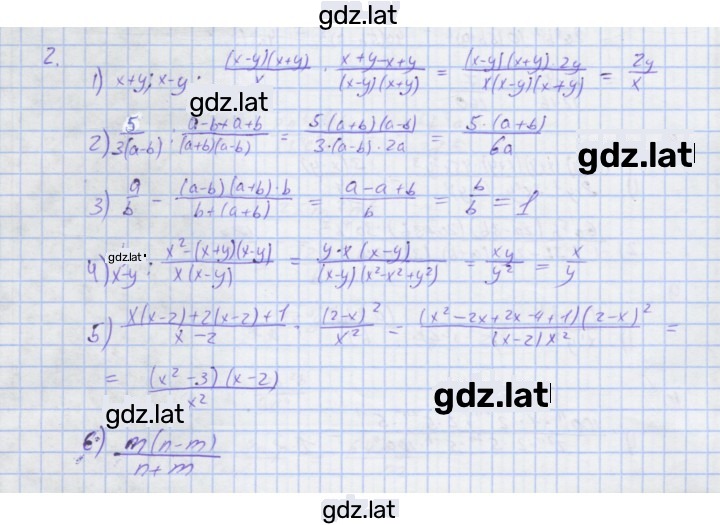 gdz.lat
2.
1) x+y; x-y · (x-y)(x+y)/x · x+y-x+y/(x-y)(x+y) = (x-y)(x+y) 2y/x(x-y)(x+y) = 2y/x
gdz.lat
2) 5/3(a-b) : a-b+a+b/(a+b)(a-b) = 5(a+b)(a-b)/3·(a-b)·2a = 5·(a+b)/6a
gdz.lat
3) a/b - (a-b)(a+b)·b/b+(a+b) = a-a+b/b = b/b = 1
gdz.lat
4) x-y : x²-(x+y)(x-y)/x(x-y) = y·x(x-y)/(x-y)(x²-x²+y²) = xy/y² = x/y
5) x(x-2)+2(x-2)+1/x-2 · (2-x)²/x² = (x²-2x+2x-4+1)(2-x)²/(x-2)x² =
= (x²-3)(x-2)/x²
gdz.lat
gdz.lat
6) m(n-m)/n+m
gdz.lat